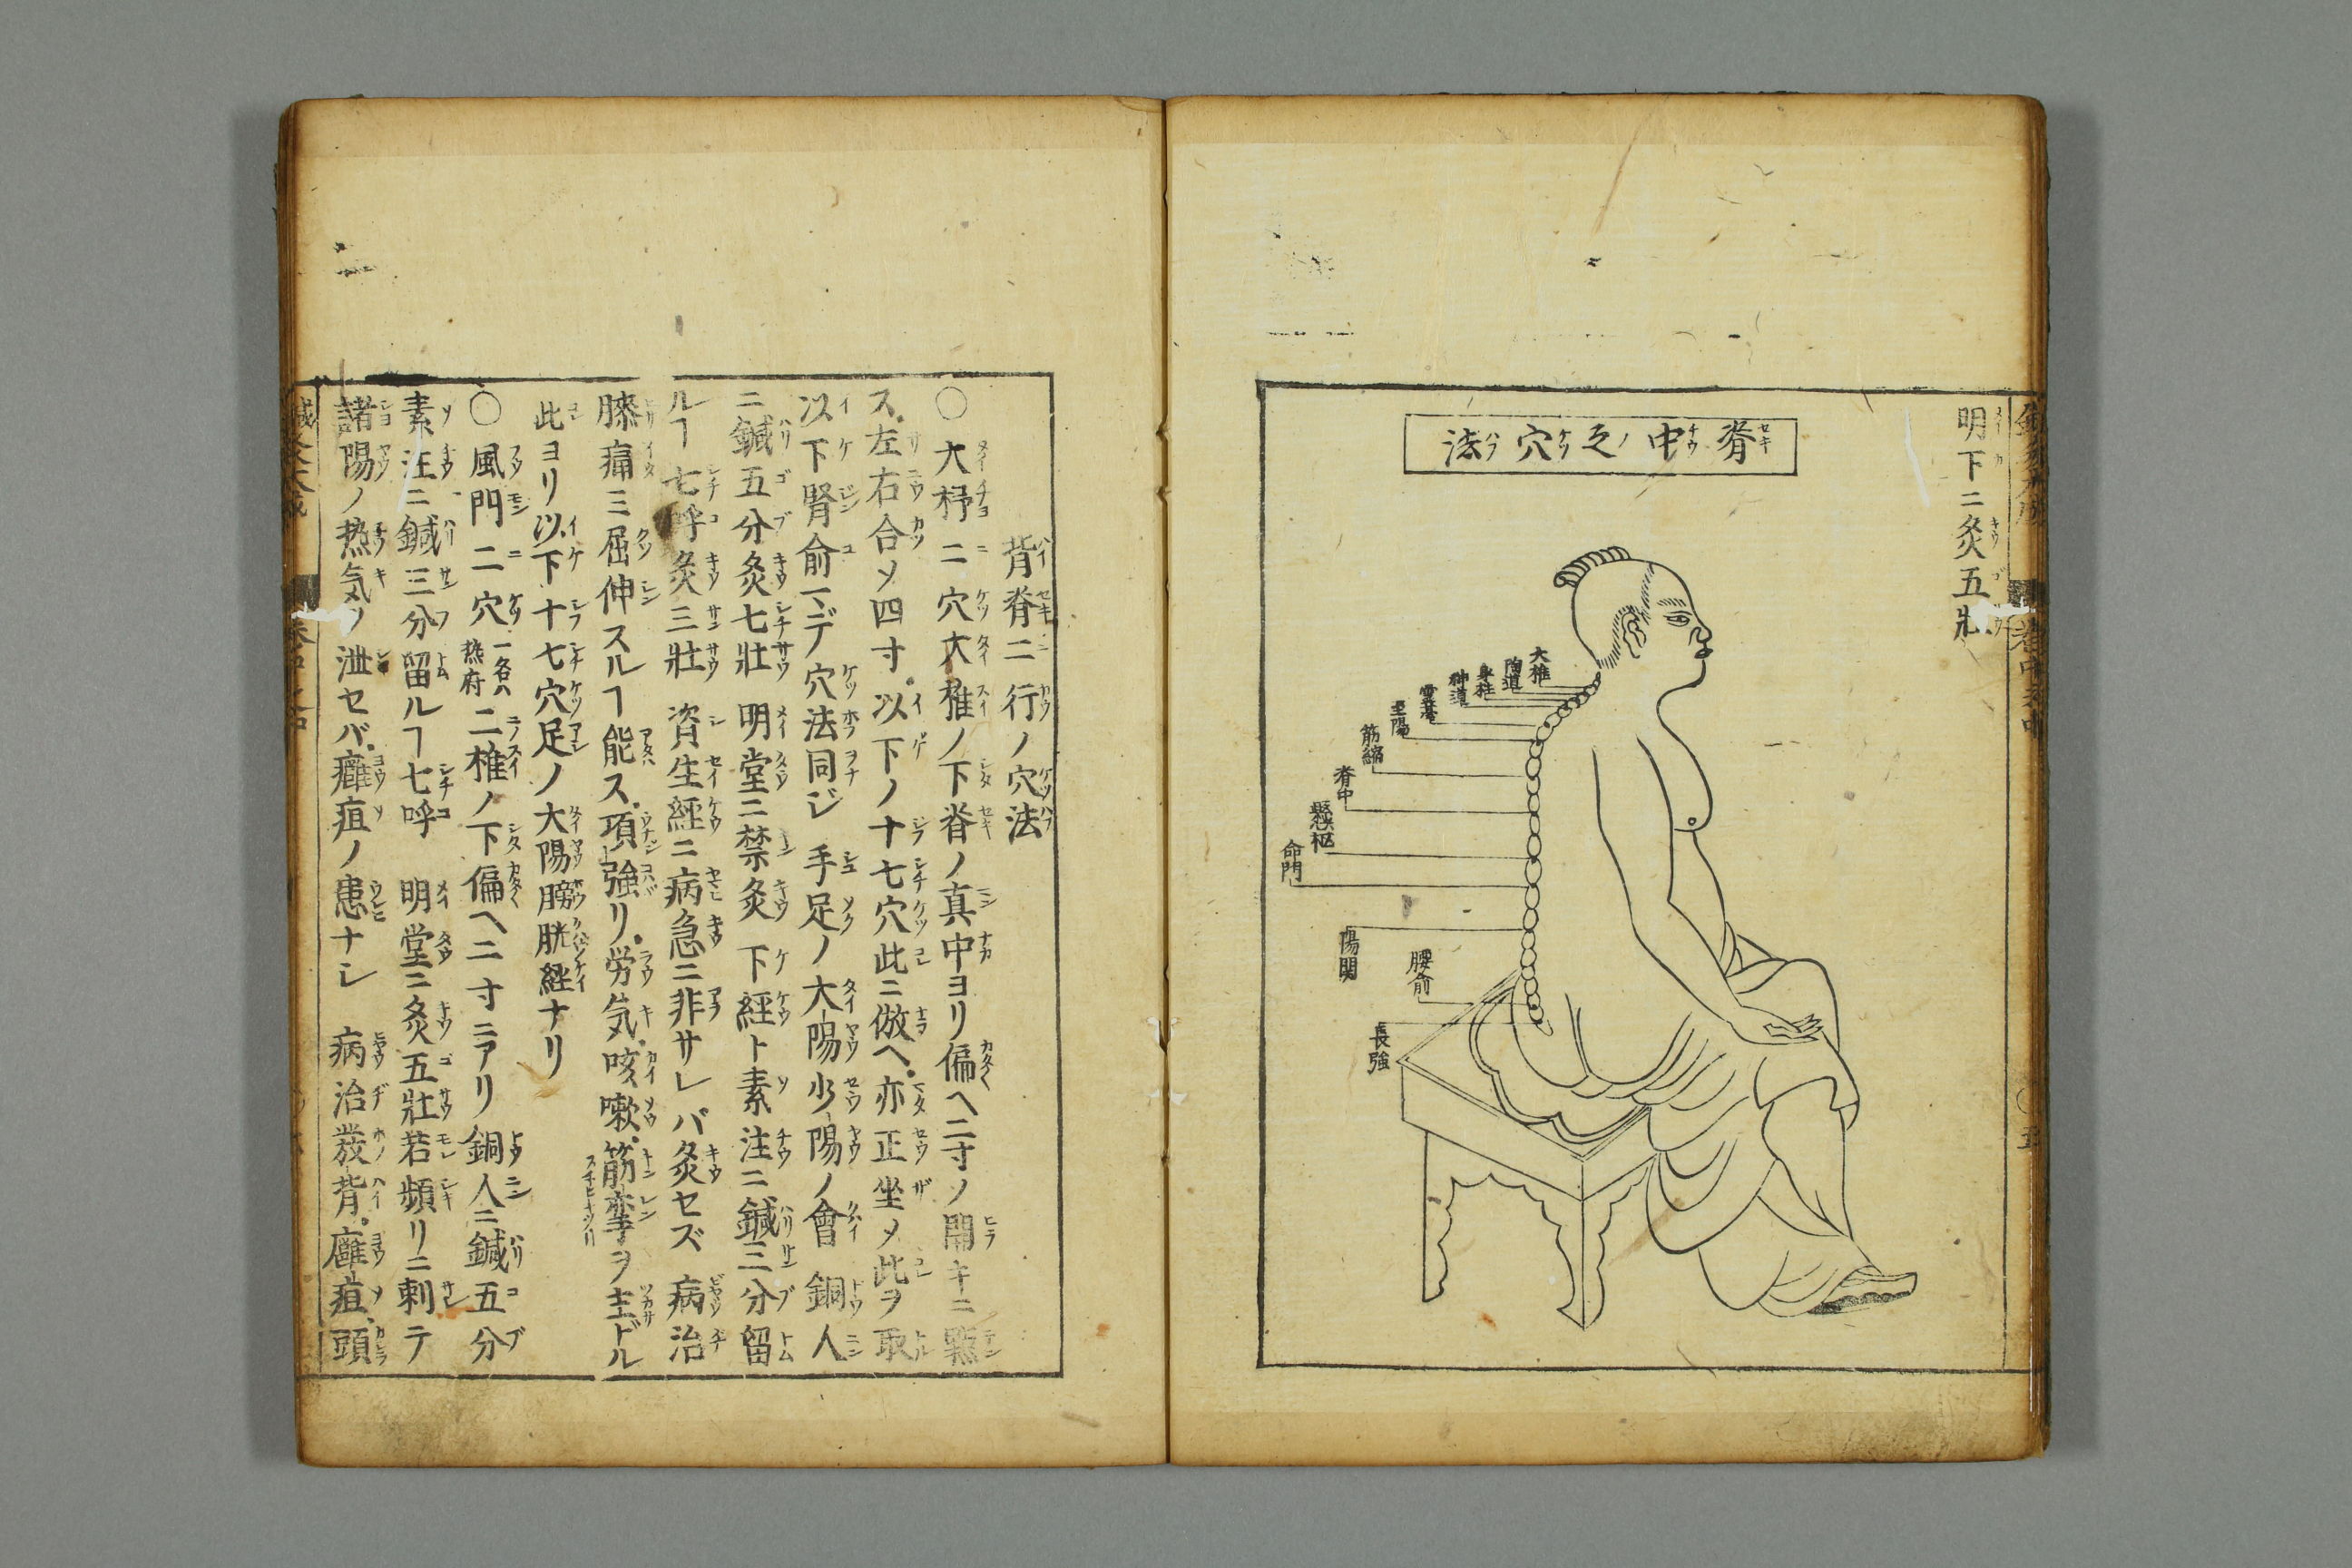 明下ニ灸五壯
脊中之穴法
大椎
陶道
身柱
神道
霊臺
至陽
筋縮
脊中
懸枢
命門
陽関
腰俞
長強
背脊二行ノ穴法
〇大杼二穴大椎ノ下脊ノ真中ヨリ偏ヘ二寸ノ開キニ點
ス左右合メ四寸以下ノ十七穴此ニ倣ヘ亦正坐メ此ヲ取
以下腎俞マデ穴法同ジ 手足ノ大陽少陽ノ會 銅人
ニ鍼五分灸七壯 明堂ニ禁灸 下經ト素注ニ鍼三分留
ルヿ七呼灸三壯 資生經ニ病急ニ非サレバ灸セズ 病治
膝痛ミ屈伸スルヿ能ス項強リ労気咳嗽筋攣ヲ主ドル
此ヨリ以下十七穴足ノ大陽膀胱経ナリ
〇風門二穴一名ハ熱府二椎ノ下偏ヘ二寸ニアリ 銅人ニ鍼五分
素注ニ鍼三分留ルヿ七呼 明堂ニ灸五壯若頻リニ刺テ
諸陽ノ热気ヲ泄セバ癰疽ノ患ナシ 病治發背癰疽頭